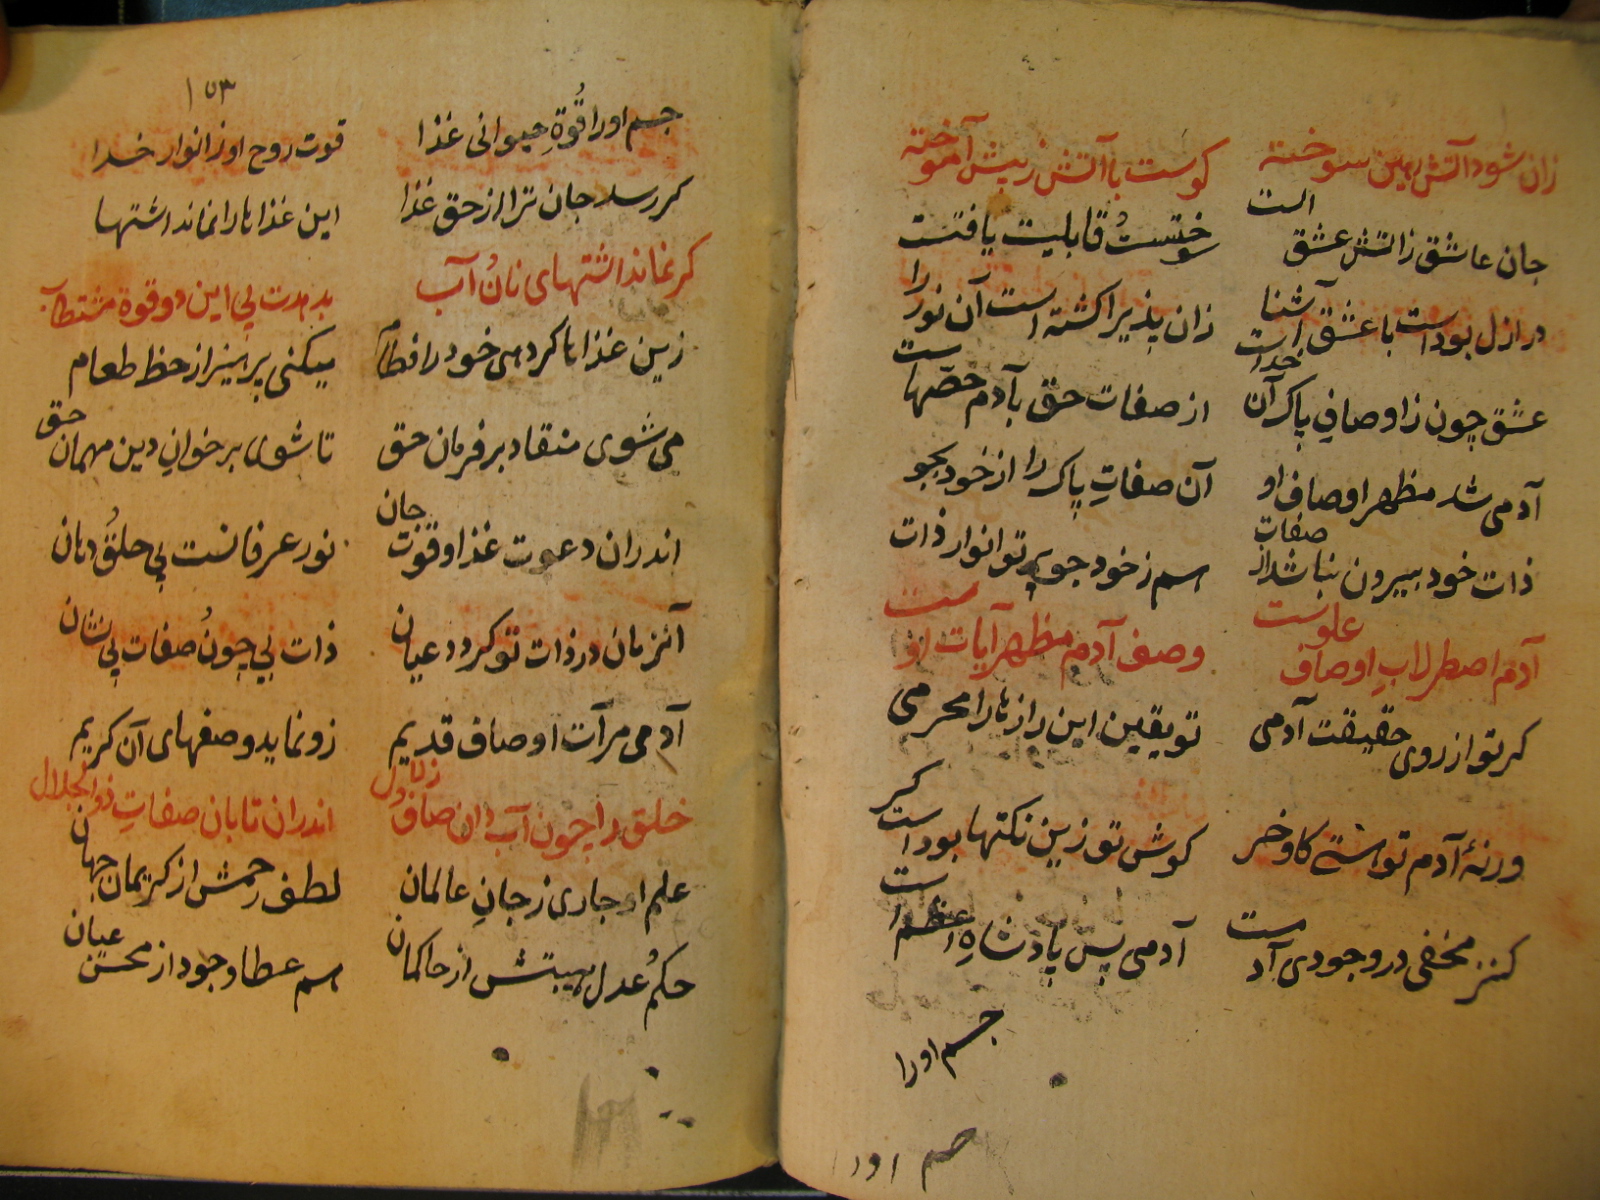 زان شود آتش رهین سوخته   کوست با آتش ز پیش آموخته
جان عاشق ز آتش عشق الست   سوختست و قابلیت یافتست
در ازل بودست با عشق آشنا   زان پذیرا کشته است آن نور را
عشق چون ز اوصاف پاک آن خداست   از صفات حق بآدم حصهاست
آدمی شد مظهر اوصاف او   آن صفات پاک را از خود بجو
ذات خود بیرون نباشد از صفات   اسم ز خود جو پرتو انوار ذات
آدم اصطرلاب اوصاف علوست   وصف آدم مظهر آیات اوست
کر تو از روی حقیقت آدمی   تو یقین این رازها را محرمی
ورنهٔ آدم تو هستی کاو خر   کوش تو زین نکتها بودست کر
کنز مخفی در وجودی آدمست   آدمی پس پادشاه اعظمست
جسم اورا
جسم اورا
۱۵۳
جسم اورا قوة حیوانی غذا   قوت روح او ز انوار خدا
کر رسد جان ترا از حق غذا   این غذاها را نماند اشتها
کر نماند اشتهای نان و آب   بدهدت بی این دو قوة مستطاب
زین غذاها کر دهی خود را فطام   میکنی پرهیز از حظ طعام
می شوی منقاد بر فرمان حق   تا شوی بر خوان دین مهمان حق
اندران دعوت غذا و قوت جان   نور عرفانست بی حلق و دهان
آنزمان در ذات تو کردد عیان   ذات بی چون و صفات بی نشان
آدمی مرآت اوصاف قدیم   زو نماید وصفهای آن کریم
خلق را چون آب دان صاف و زلال   اندران تابان صفات ذوالجلال
علم او جاری ز جان عالمان   لطف و رحمش از کریمان جهان
حکم و عدل و هیبتش از حاکمان   اسم عطا وجود از محسن عیان